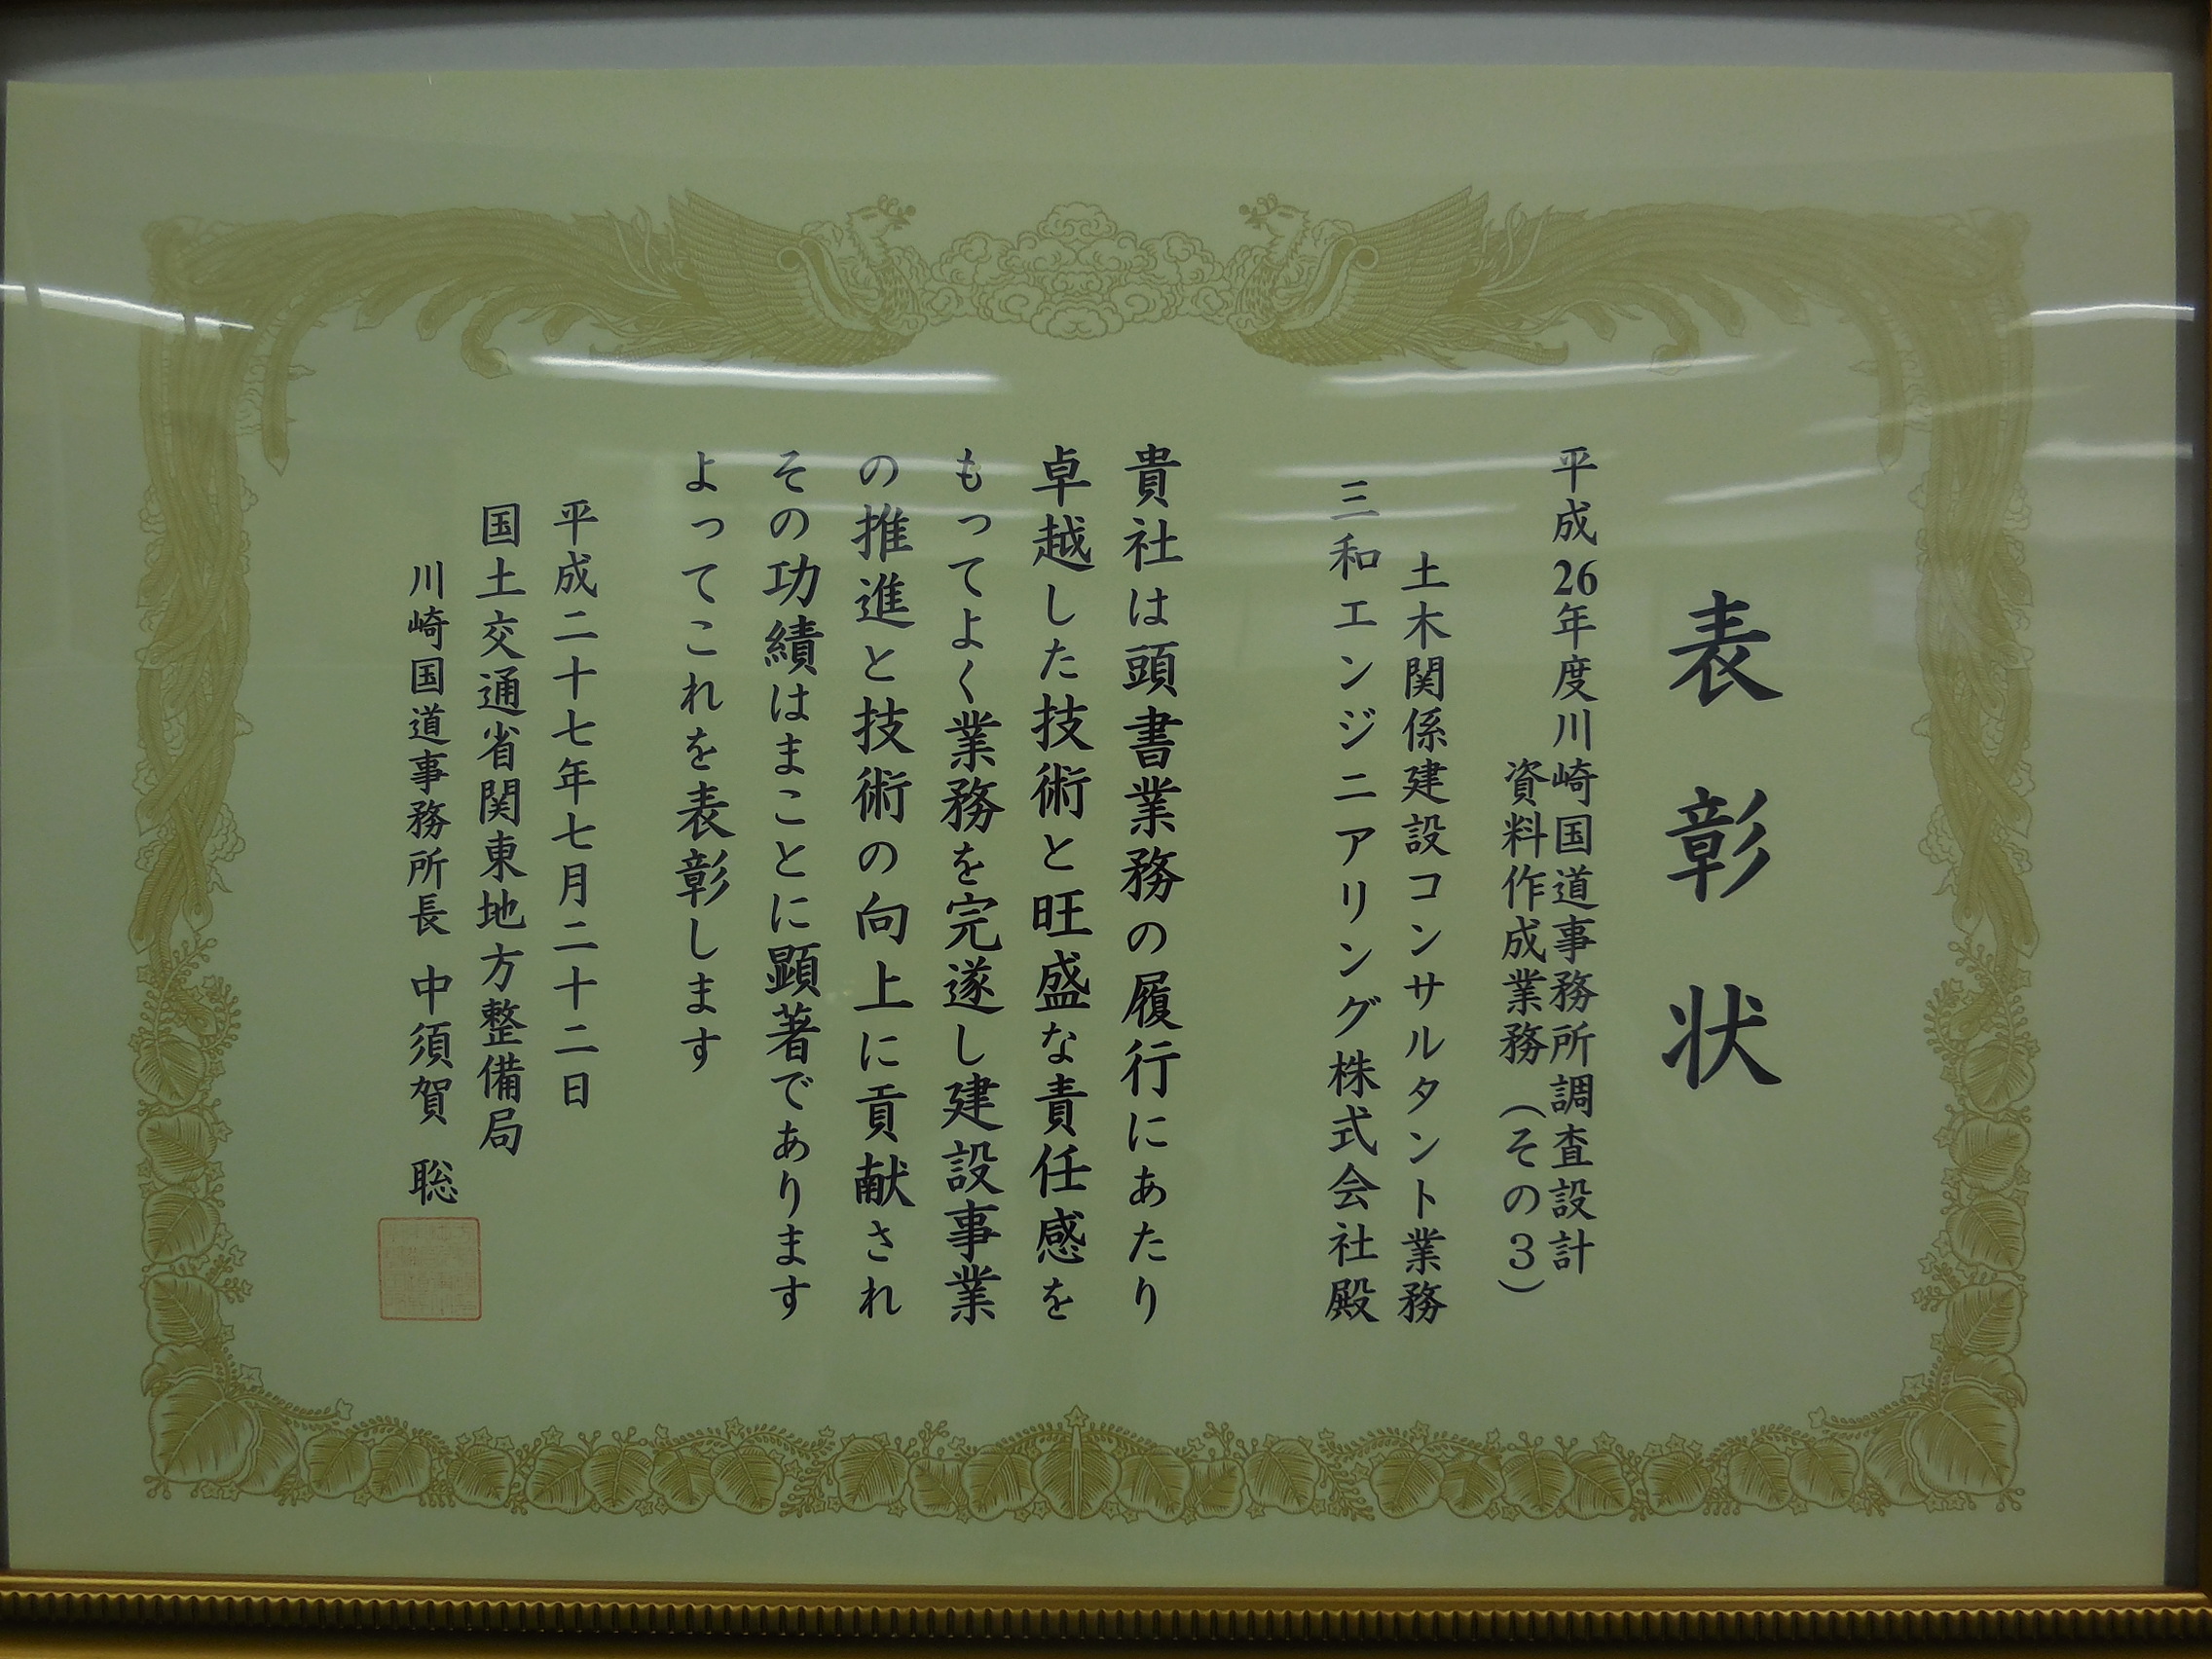 表彰状
平成26年度川崎国道事務所調査設計
資料作成業務(その3)
土木関係建設コンサルタント業務
三和エンジニアリング株式会社殿
貴社は頭書業務の履行にあたり
卓越した技術と旺盛な責任感を
もってよく業務を完遂し建設事業
の推進と技術の向上に貢献され
その功績はまことに顕著であります
よってこれを表彰します
平成二十七年七月二十二日
国土交通省関東地方整備局
川崎国道事務所長 中須賀 聡